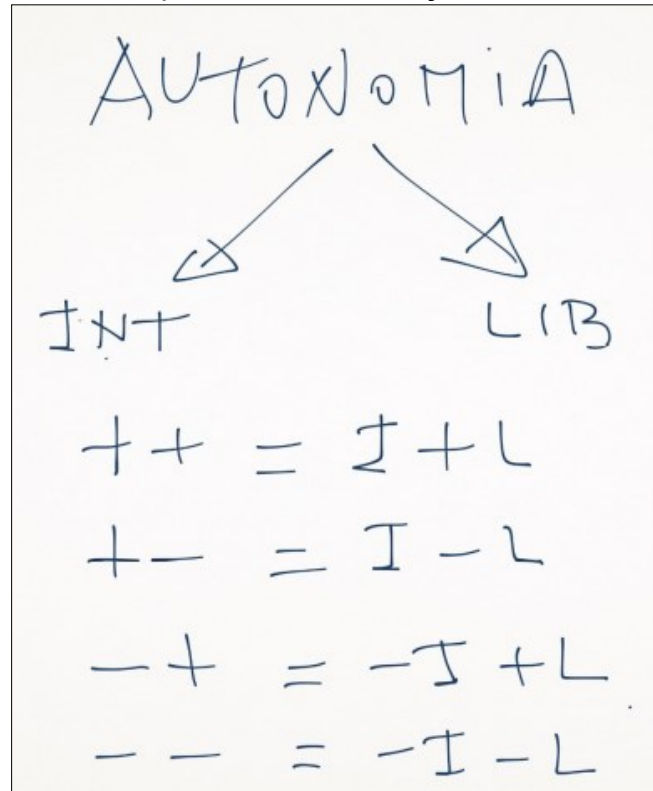 AUTONOMIA
INT LIB
++ = I+L
+- = I-L
-+ = -I+L
-- = -I-L